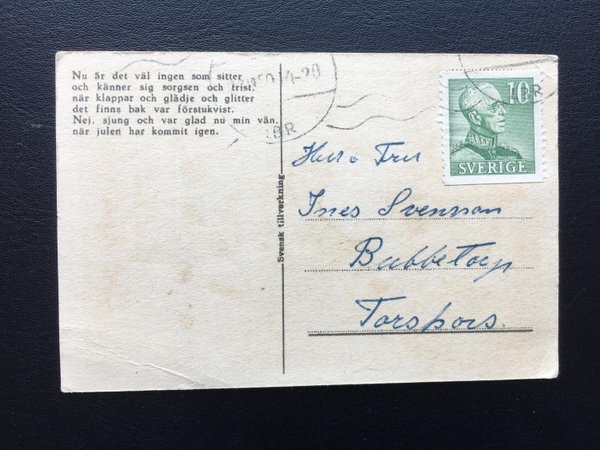 Nu är det väl ingen som sitter
och känner sig sorgsen och trist.
när klappar och glädje och glitter
det finns bak var förstukvist.
Nej. sjung och var glad nu min vän.
när julen har kommit igen.
Svensk tillverkning
10
SVERIGE
Fru
Ines Svensson
Bubbetorp
Torskors.